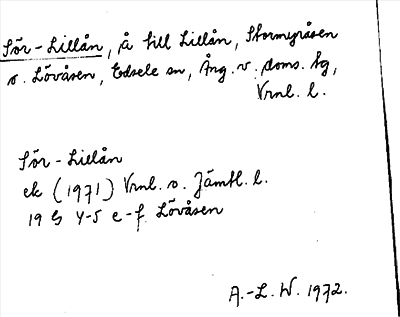 Sör-Lillån, å till Lillån, Stormyråsen
o. Lövåsen, Edsele sn, Ång. v. doms. tg,
Vrnl. l.
Sör-Lillån
ek (1971) Vrnl. o. Jämtl. l.
19 G 4-5 e-f Lövåsen
A.-L. W. 1972.